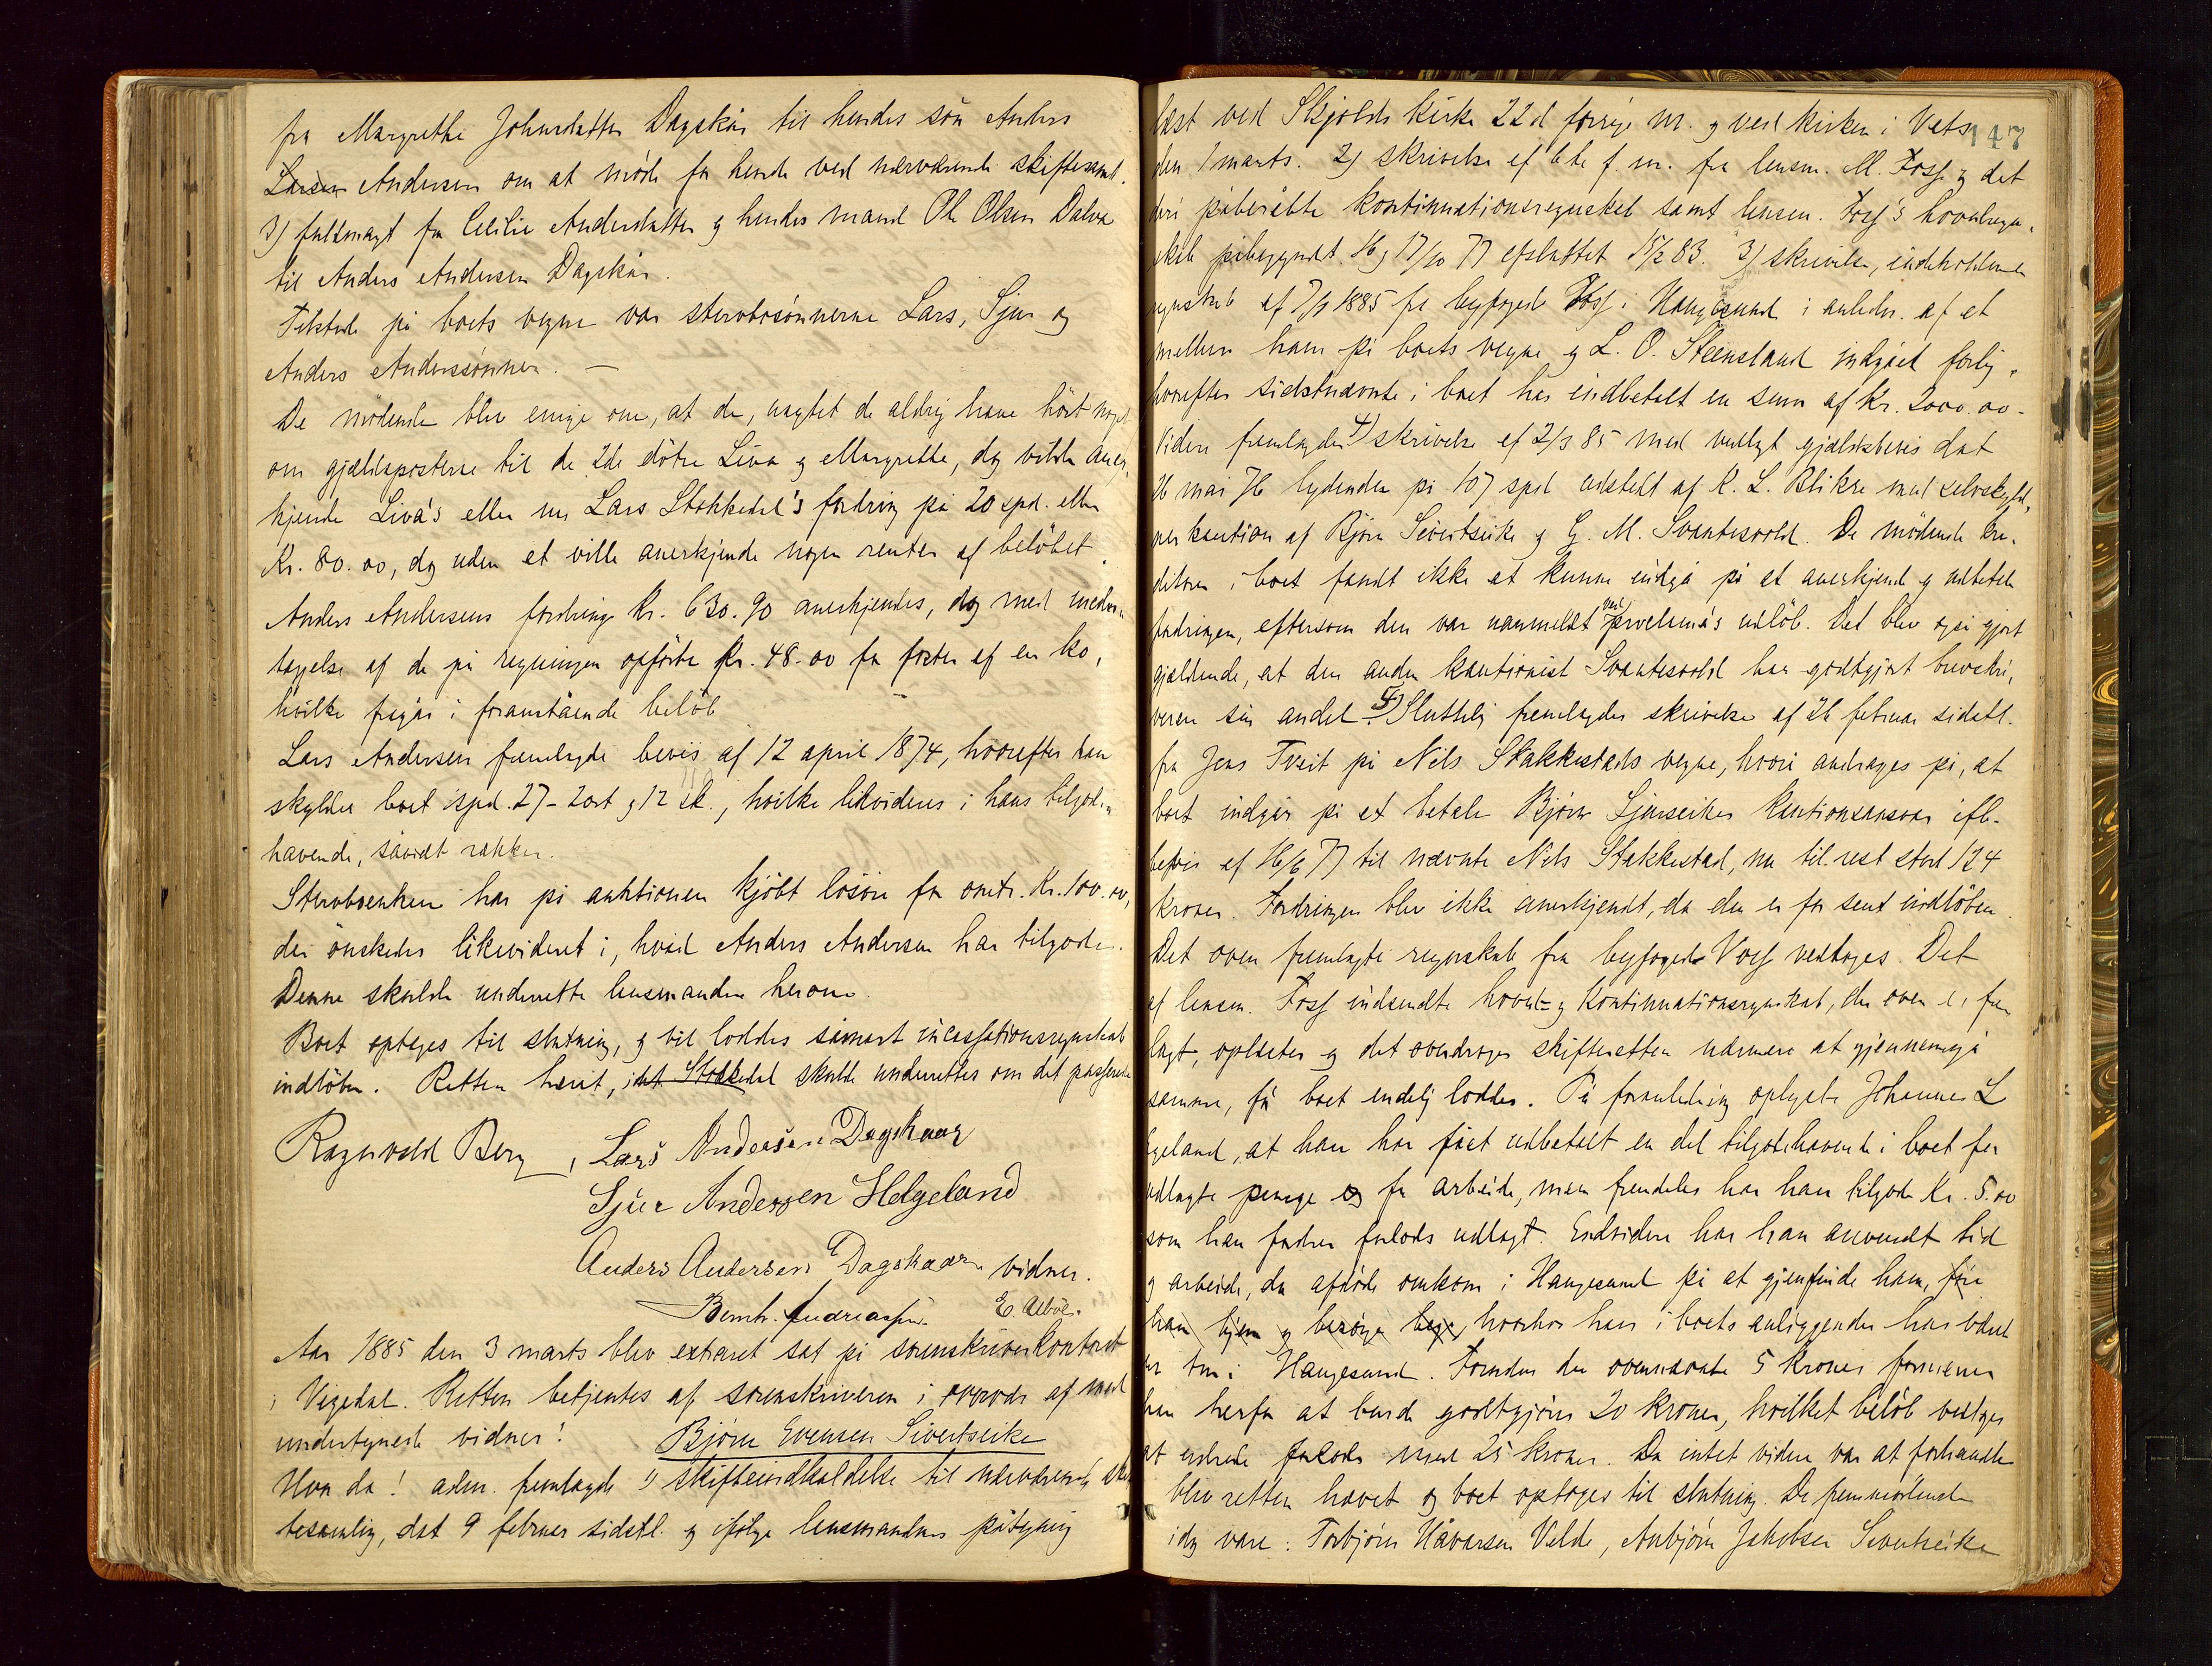 fra Margrethe Johnsdatter Dagskår til hendes sön Anders
Larsen Andersen om at möde for hende ved nærværende skiftesaml.
3) fuldmagt fra Cecilie Andersdatter og hendes mand Ole Olsen Dalva
til Anders Andersen Dagskår.
Tilstede på boets vegne var stervbosönnerne Lars, Sjur og
Anders Anderssönner. —
De mödende blev enige om, at de, uagtet de aldrig have hört noget
om gjældsposterne til de 2de dötre Liva og Margrethe, dog vilde aner-
kjende Liva's eller nu Lars Stokkedal's fordring på 20 spd. eller
Kr. 80.00, dog uden at ville anerkjende nogen renter af belöbet.
Anders Andersens fordring Kr. 630.90 anerkjendes, dog med undta-
tagelse af de på regningen opförte Kr. 48.00 for foster af en ko,
hvilke fragår i foranstående belöb.
Lars Andersen fremlagde bevis af 12 april 1874, hvorefter han
skylder boet spd. 27 - 2 ort og 12 sk., hvilke likvideres i hans tilgode-
havende, såvidt rækker.
Stervboenken har på auktionen kjöbt lösöre for omtr. Kr. 100.00,
der önskedes likvideret i, hvad Anders Andersen har tilgode.
Denne skulde underrette lensmanden herom.
Boet optages til slutning, og vil loddes såsnart incassationsregnskab
indlöber. Retten hævet, idet Stokkedal skulde underrettes om det passerede
Ragnvald Berg, Lars Andersen Dagskaar
Sjur Andersen Helgeland
Anders Andersen Dagskaar vidner.
Bernh. Andreassen. E. Aeböe.
Aar 1885 den 3 marts blev extraret sat på sorenskriverkontoret
i Vigedal. Retten betjentes af sorenskriveren i overvær af med
undertegnede vidner:
Bjørn Evensen Sivertseike
Hvor da: adm. fremlagde 1) skifteindkaldelse til nærværende ski
tesamling, dat 9 februar sidstl. og ifölge lensmandens påtegning
147
læst ved Skjolds kirke 22d forrige m. og ved kirken i Vats
den 1 marts. 2) skrivelse af f. m. fra lensm. M. Foss og det
deri påberåbte kontinuationsregnskab samt lensm. Foss's hovedregn-
skab påbegyndt 16 og 17/10 77 afsluttet 15/2 83. 3) skrivelse, indeholdende
regnskab af 7/1 1885 fra byfoged Voss i Haugesund i anledn. af et
mellem ham på boets vegne og L. O. Steensland indgået forlig,
hvorefter sidstnævnte i boet har indbetalt en sum af Kr. 2000.00-
Videre fremlagdes 4) skrivelse af 2/3 85 med vedlagt gjældsbevis dat
26 mai 76 lydende på 107 spd udstedt af K. L. Blikre med selvskyld-
ner kaution af Bjørn Seivertseike og G. M. Svantesvold. De mödende kre-
ditorer i boet fandt ikke at kunne indgå på at anerkjende og udbetale
fordringen, eftersom den var uanmeldt ved proclama's udlöb. Det blev også gjort
gjældende, at den anden kautionist Svantesvold har godtgjort brevskri-
veren sin andel. 5) Sluttelig fremlagdes skrivelse af 26 februar sidstl.
fra Jens Tveit på Nels Stakkestads vegne, hvori andrages på, at
boet indgår på at betale Bjørn Sjurseikes kautionsansvar ifl.
bevis af 16/6 77 til nævnte Nels Stakkestad, nu til rest stod 124
kroner. Fordringen blev ikke anerkjendt, da den er for sent indlöben.
Det oven fremlagte regnskab fra byfoged Voss vedtoges. Det
af lensm. Foss indsendte hoved- og kontinuationsregnskab, der oven er frem
lagt, oplæstes og det overdroges skifteretten nærmere at gjennemgå
samme, för boet endelig loddes. På foranledning oplyste Johannes L
geland, at han har fået udbetalt en del tilgodehavende i boet for
udlagte penge og for arbeide, men fremdeles har han tilgode Kr. 5.00
som han fordrer forlods udlagt. Endvidere har han anvendt tid
og arbeide, da afdöde omkom i Haugesund på at gjenfinde ham, före
ham hjem og besörge hvorhos han i boets anliggender har været
tur i Haugesund. Foruden de ovennævnte 5 kroner formener
han herfor at burde godtgjöres 20 kroner, hvilket belöb vedtages
at erholde forlods med 25 kroner. Da intet videre var at forhandle
blev retten hævet og boet optoges til slutning. De fremmödende
idag vare: Torbjörn Håvarsen Velde, Anbjörn Jakobsen Sivertseike